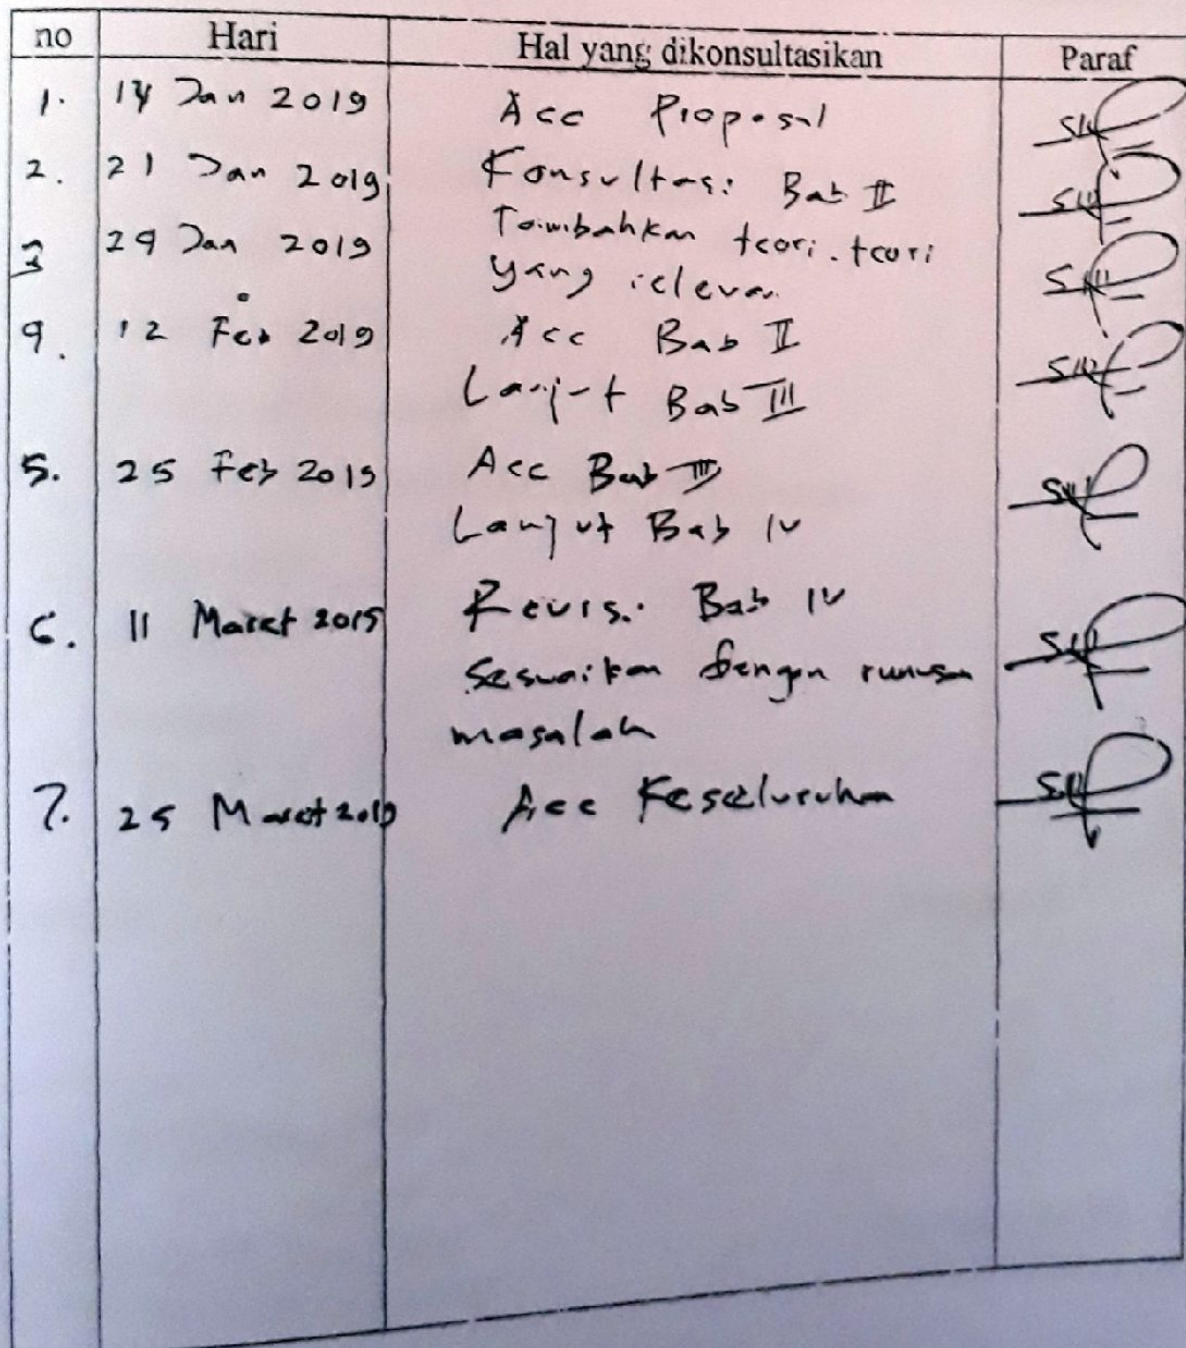 no Hari Hal yang dikonsultasikan Paraf
1. 14 Jan 2019 Acc Proposal
2. 21 Jan 2019 Konsultasi Bab II
3 29 Jan 2019 Tambahkan teori-teori
yang relevan
4. 12 Feb 2019 Acc Bab II
Lanjut Bab III
5. 25 Feb 2019 Acc Bab III
Lanjut Bab IV
6. 11 Maret 2019 Revisi Bab IV
Sesuaikan dengan rumusan
masalah
7. 25 Maret 2019 Acc Keseluruhan